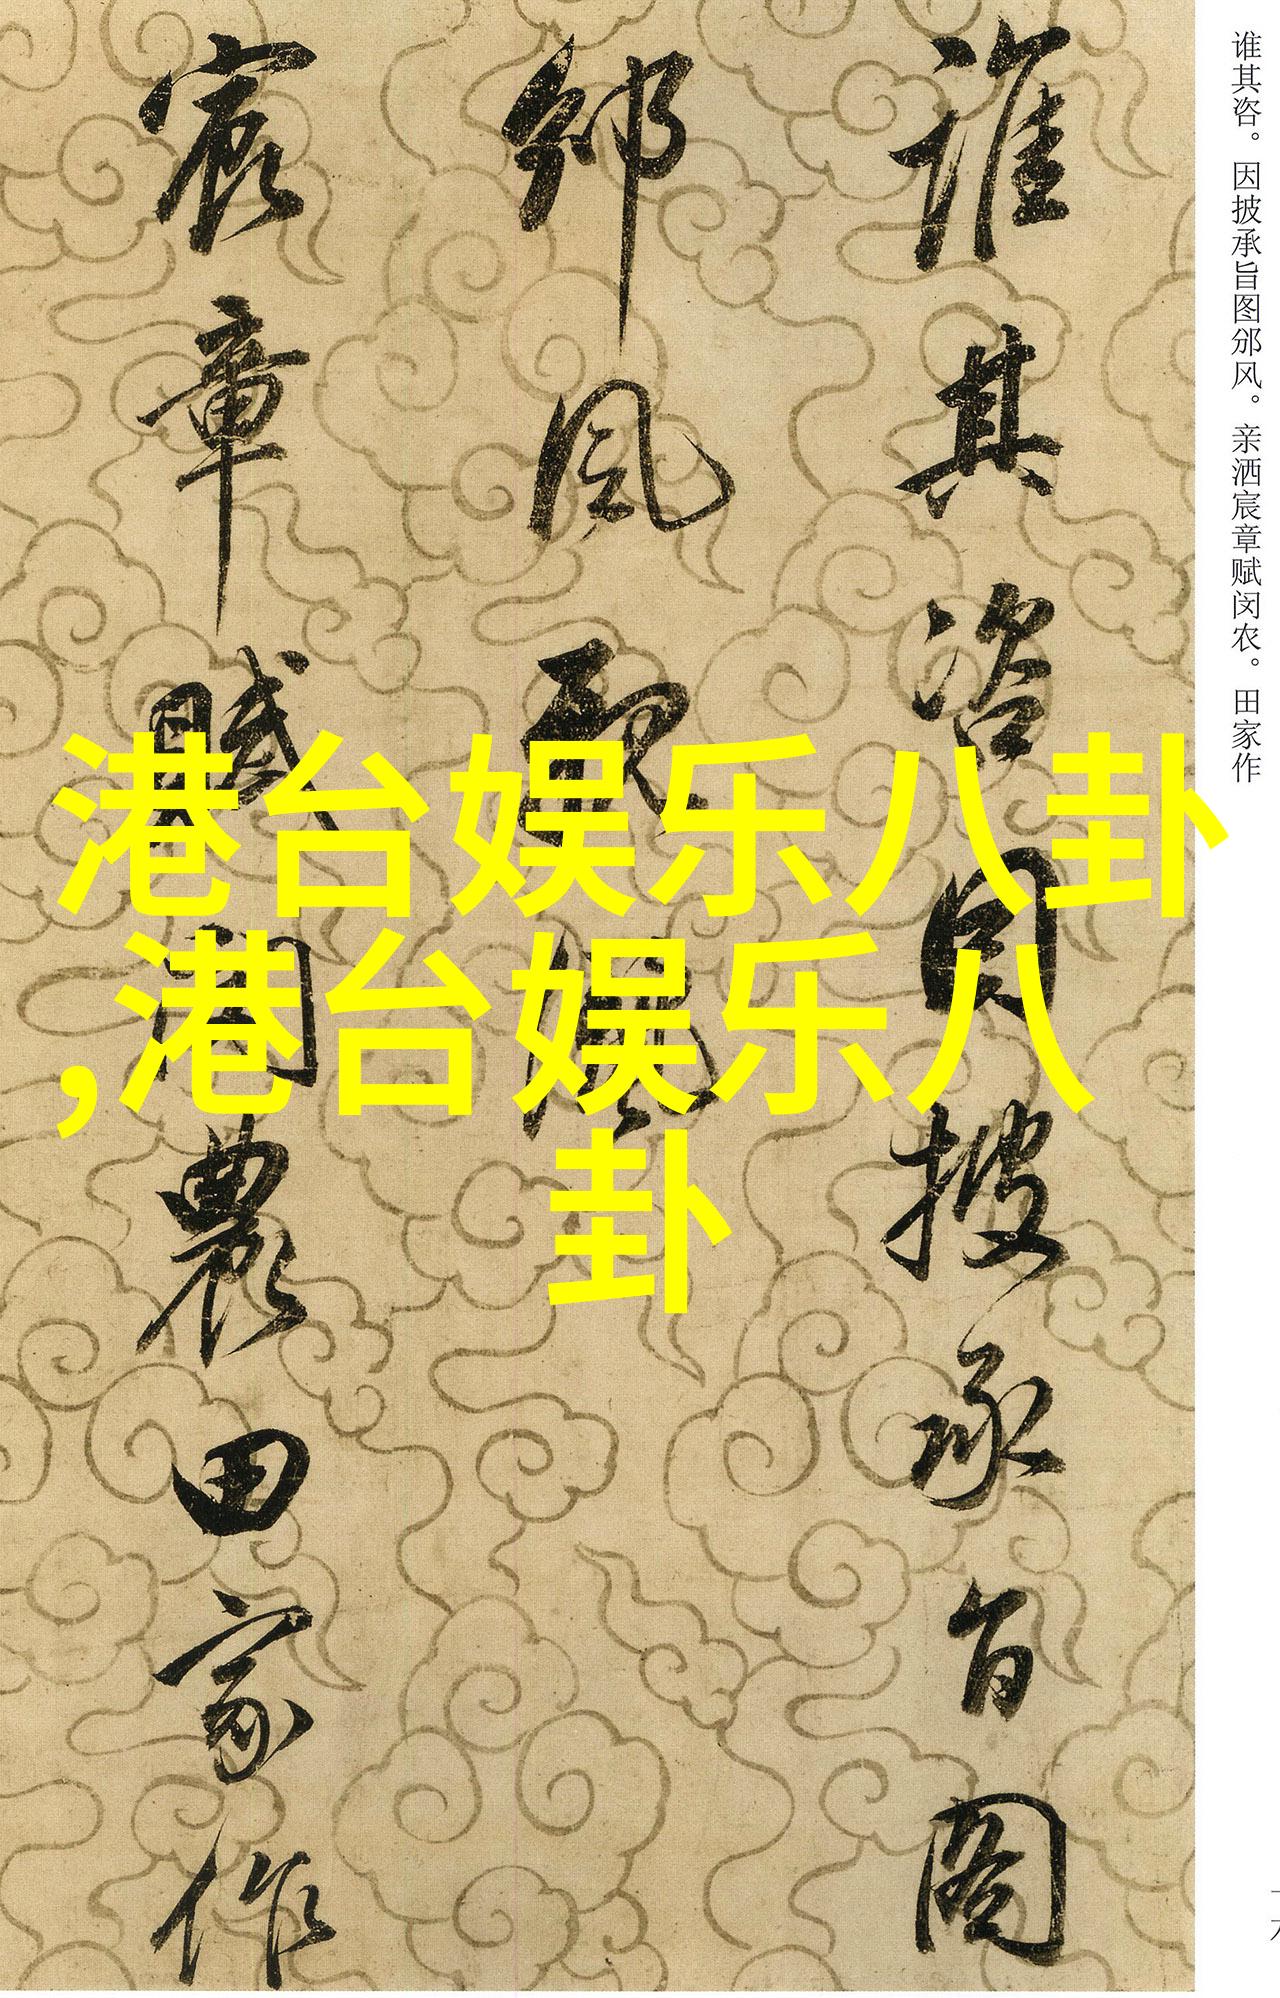 谁其咨。因披承旨图邠风。亲洒宸章赋闵农。田家作
誰其咨因披承旨圖
邠風親灑
宸章賦閔農田家作
港台娱乐八卦
,港台娱乐八
卦